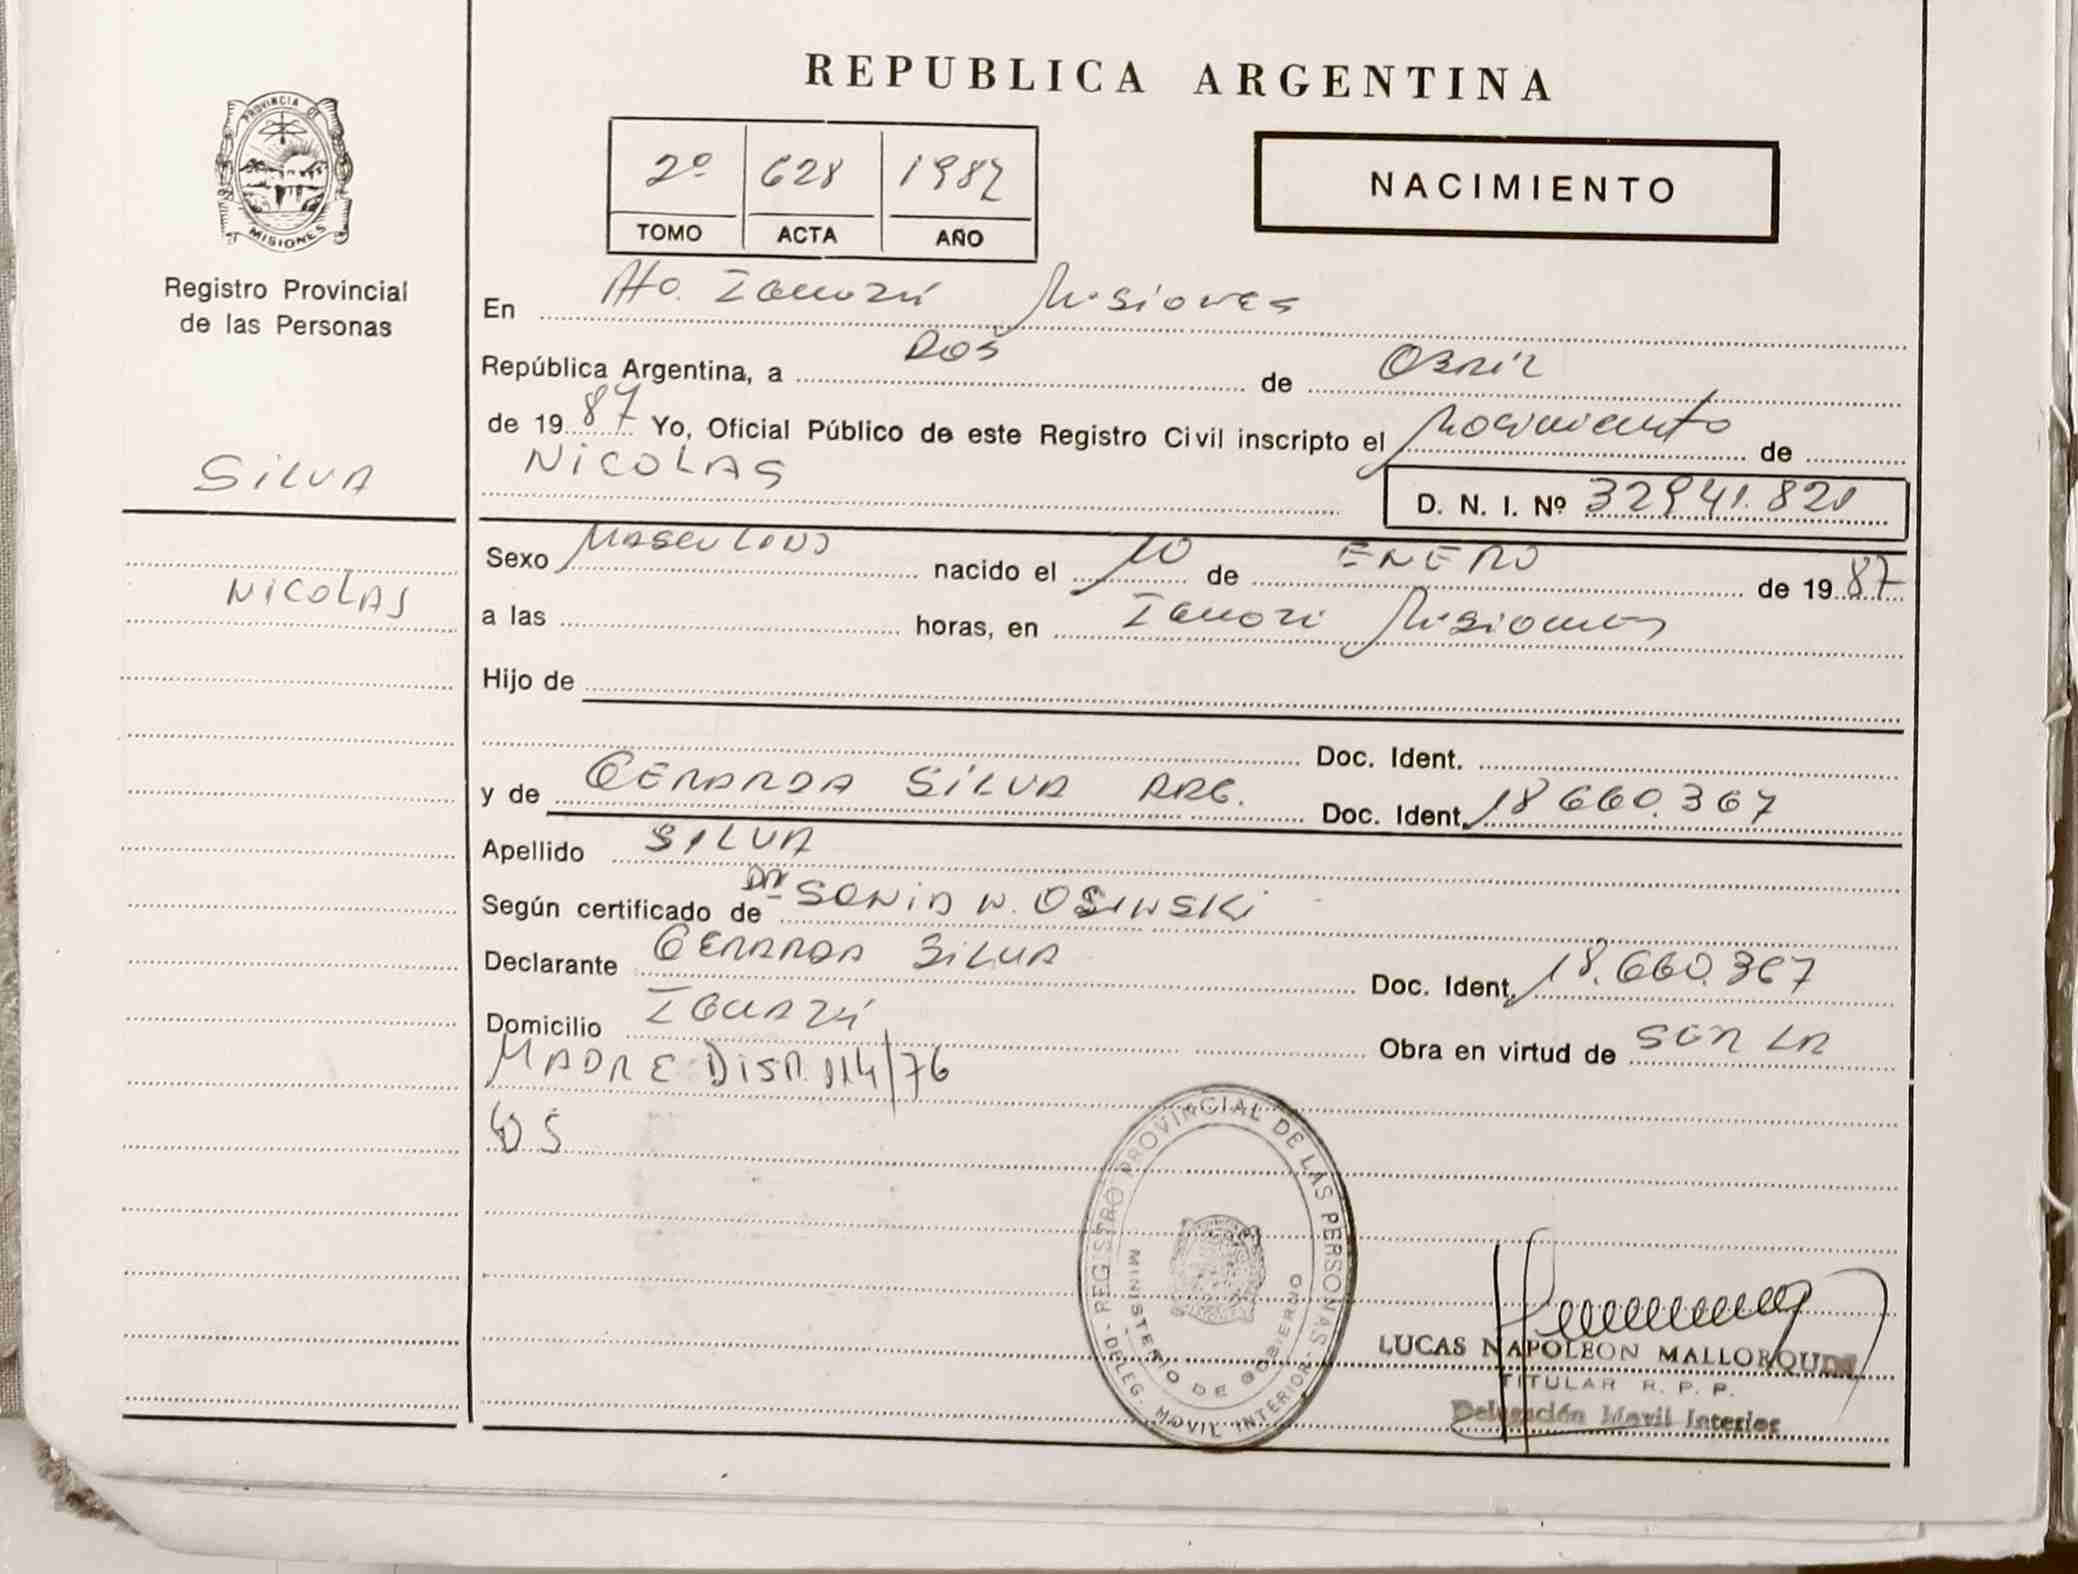 REPUBLICA ARGENTINA
PROVINCIA DE MISIONES
Registro Provincial
de las Personas
2º 628 1987
TOMO ACTA AÑO
NACIMIENTO
En Pto. Iguazú Misiones
República Argentina, a Dos de Abril
de 1987 Yo, Oficial Público de este Registro Civil inscripto el Nacimiento de
SILVA
NICOLAS
D. N. I. Nº 32.941.821
NICOLAS
Sexo Masculino nacido el 10 de ENERO de 1987
a las horas, en Iguazú Misiones
Hijo de
Doc. Ident.
y de GERARDA SILVA ARG. Doc. Ident. 18.660.367
Apellido SILVA
Según certificado de Dra SONIA N. OSINSKI
Declarante GERARDA SILVA Doc. Ident. 18.660.367
Domicilio IGUAZÚ Obra en virtud de SER LA
MADRE DISP. 114/76
REGISTRO PROVINCIAL DE LAS PERSONAS - DELEG. MOVIL INTERIOR -
MINISTERIO DE GOBIERNO
LUCAS NAPOLEON
TITULAR R. P. P.
Delegación Movil Interior